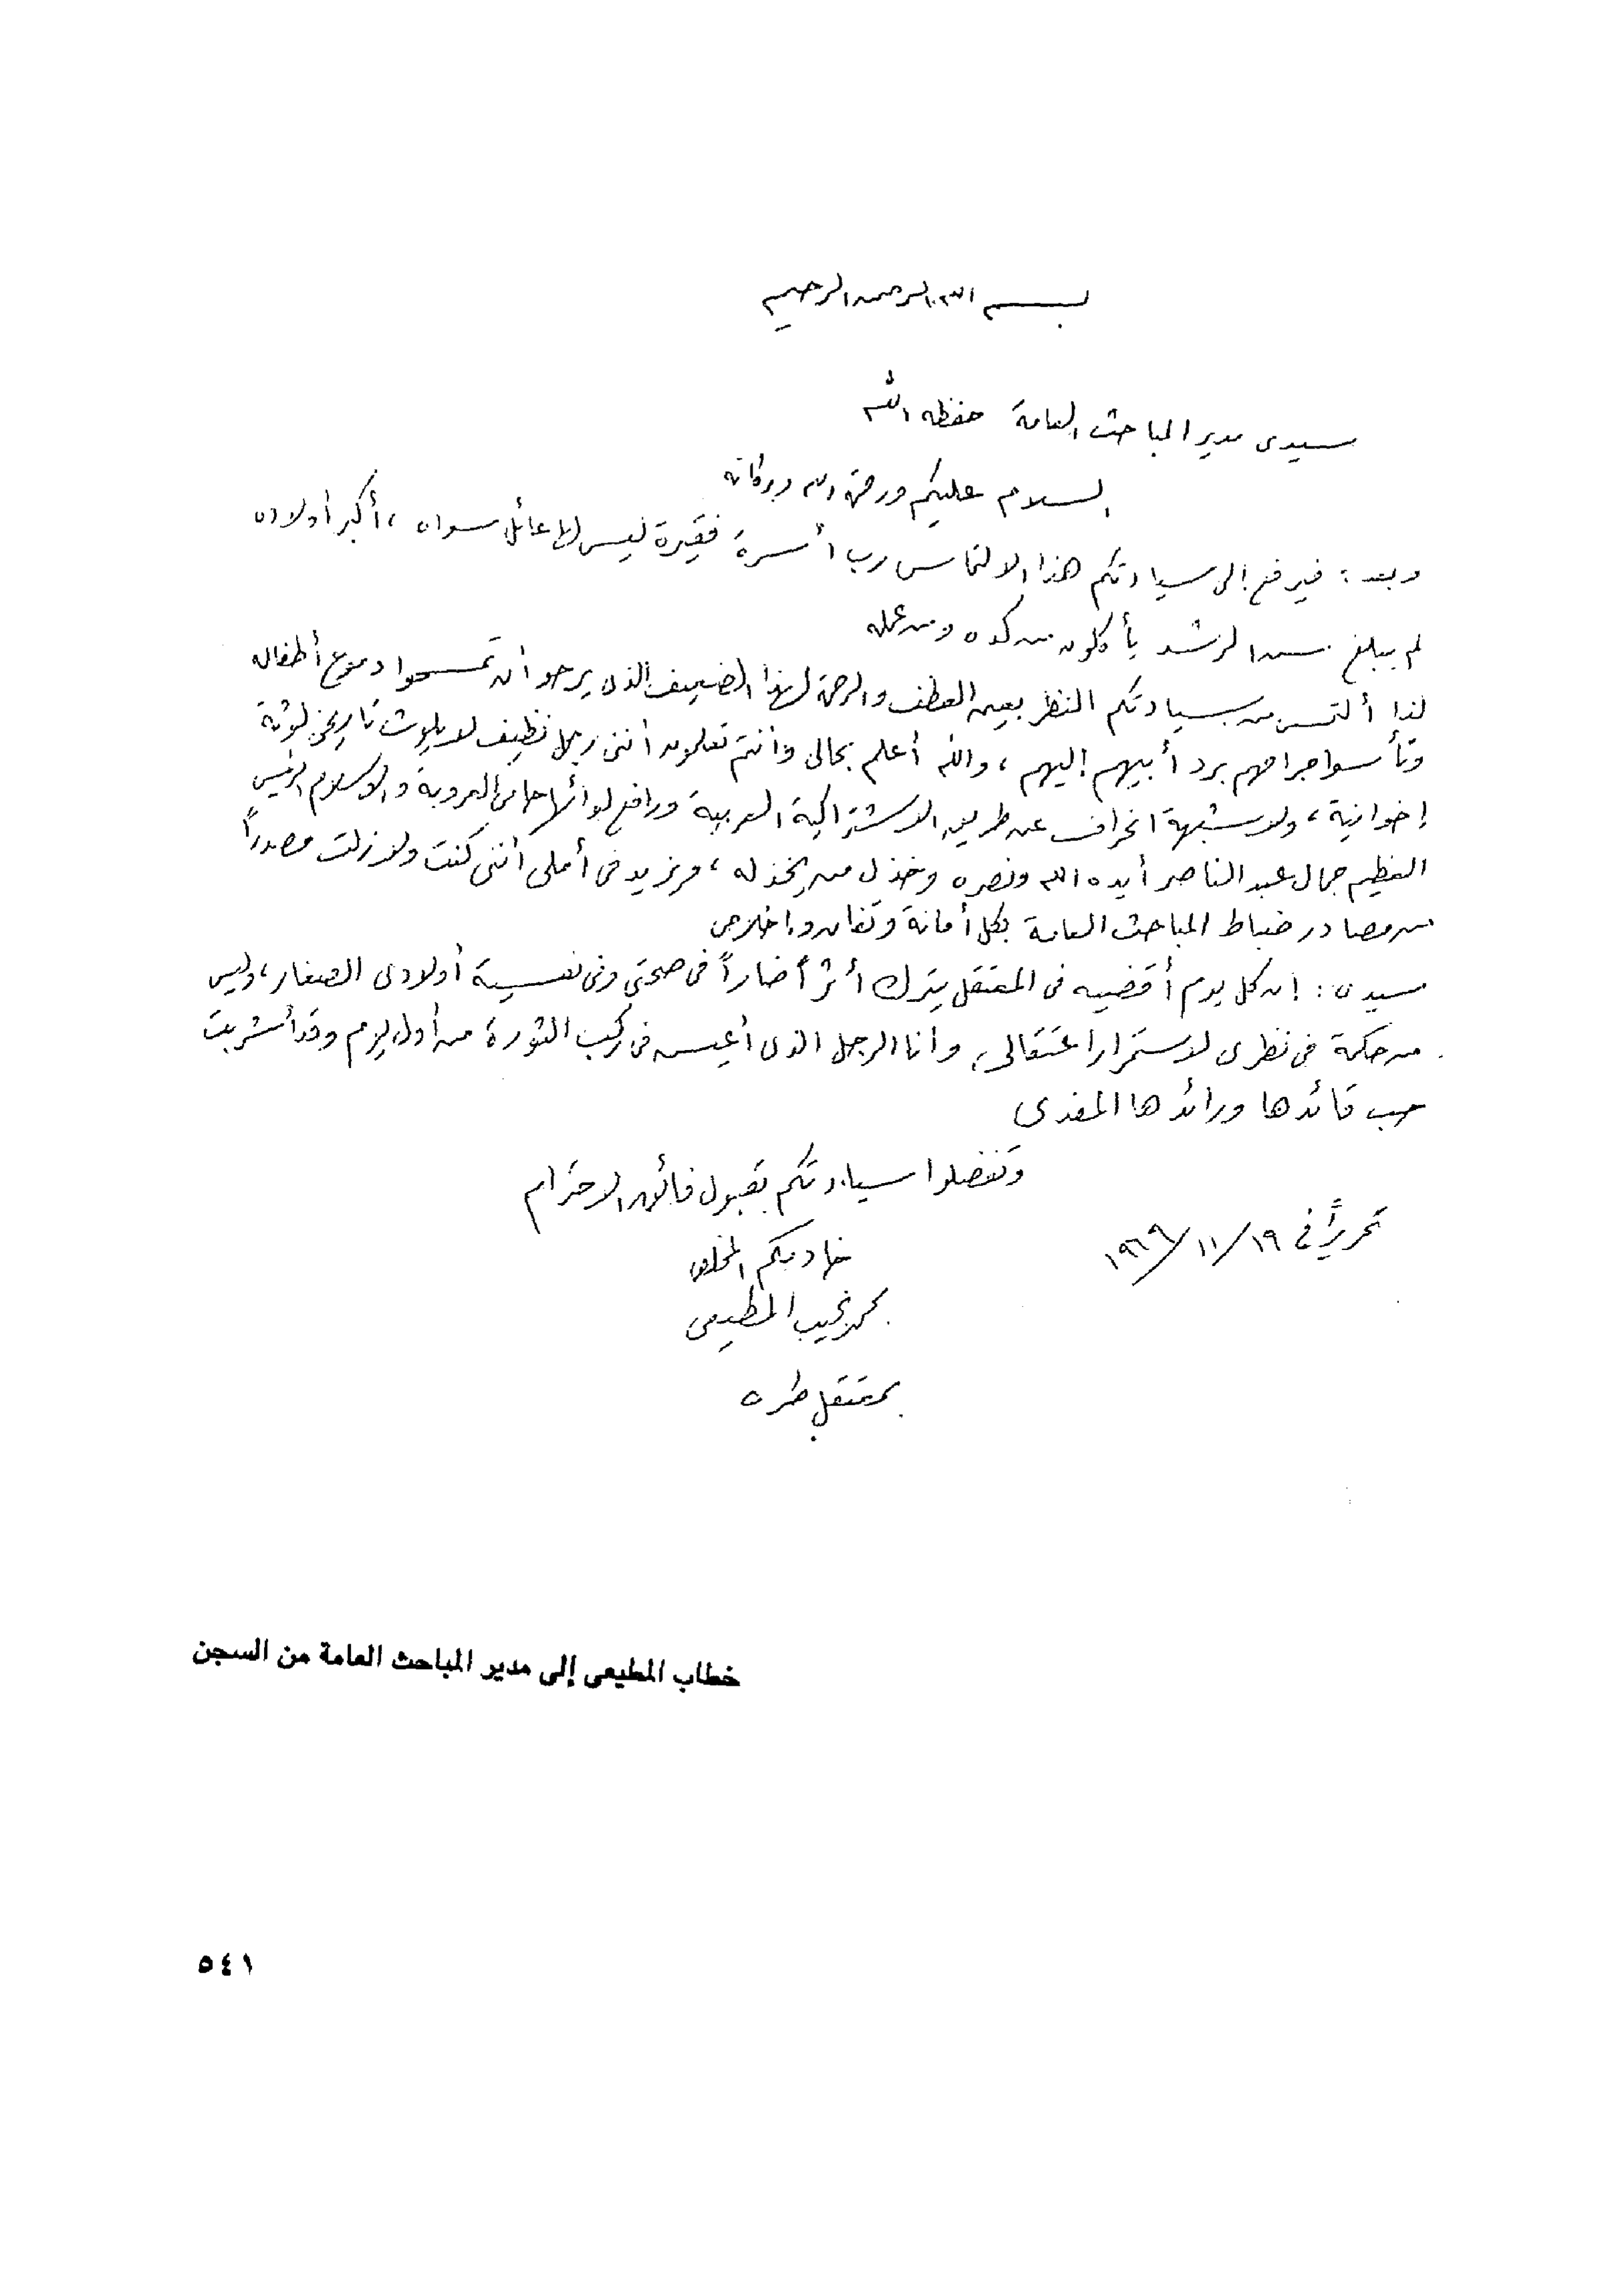 بسم الله الرحمن الرحيم
سيدى مدير المباحث العامة حفظه الله
السلام عليكم ورحمة الله وبركاته
وبعد : فيرفع إلى سيادتكم هذا الالتماس رب أسرة فقيرة ليس لها عائل سواه ، أكبر أولاده
لم يبلغ سن الرشد يأكلون من كده ومن عمله
لذا ألتمس من سيادتكم النظر بعين العطف والرحمة لهذا الضعيف الذى يرجو أن تمسحوا دموع أطفاله
وتأسوا جراحهم برد أبيهم إليهم ، والله أعلم بحالى وأنتم تعلمون أننى رجل نظيف لا يلوث تاريخى لوثة
إخوانية ، ولا شبهة انحراف عن طريق الاشتراكية العربية ورافع لوائها حامى العروبة والإسلام الرئيس
العظيم جمال عبد الناصر أيده الله ونصره وخذل من يخذله ، ويزيد فى أملى أننى كنت ولا زلت مصدراً
من مصادر ضباط المباحث العامة بكل أمانة وتفان وإخلاص
سيدى : إن كل يوم أقضيه فى المعتقل يترك أثراً ضاراً فى صحتى وفى نفسية أولادى الصغار ، وليس
من حكمة فى نظرى لاستمرار اعتقالى ، وأنا الرجل الذى أعيش فى ركب الثورة من أول يوم وقد أشربت
حب قائدها ورائدها المفدى
وتفضلوا سيادتكم بقبول فائق الاحترام
تحريراً فى ١٩/١١/١٩٦٩
خادمكم المخلص
محمد نجيب المطيعى
بمعتقل طره
خطاب المطيعى إلى مدير المباحث العامة من السجن
٥٤١